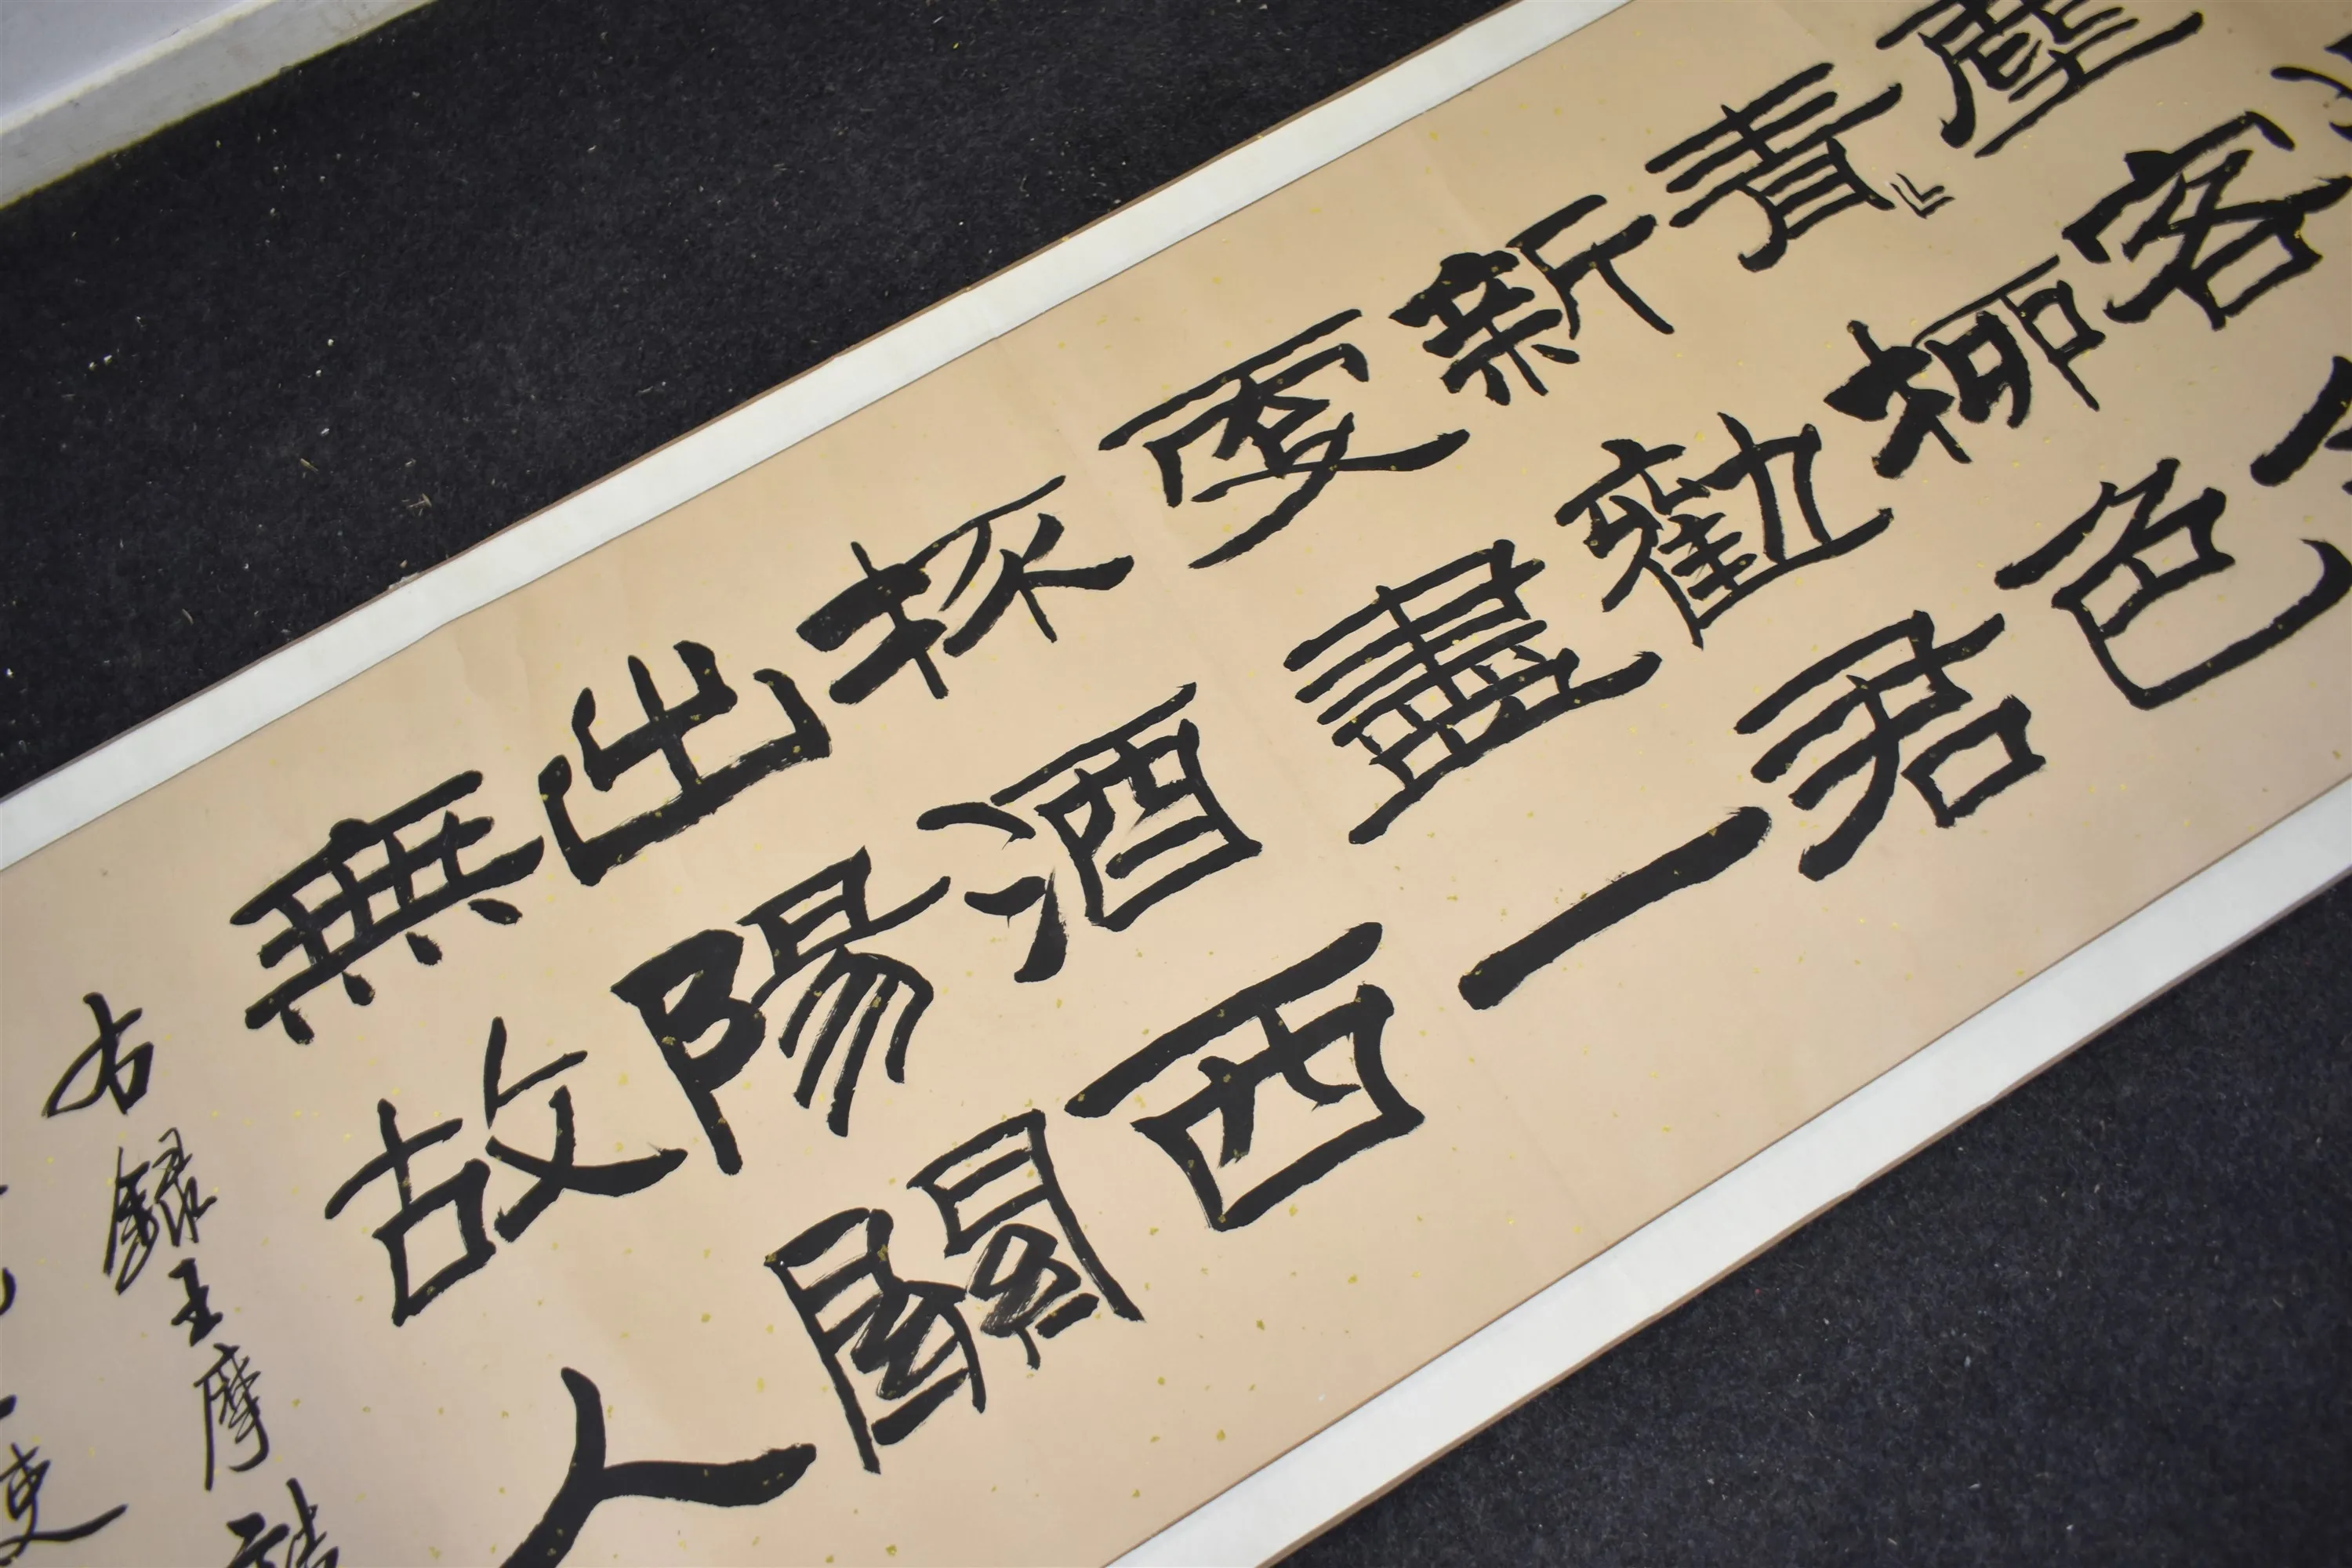 塵客
青々柳色
新勸君
更盡一
杯酒西
出陽關
無故人
右錄王摩詰